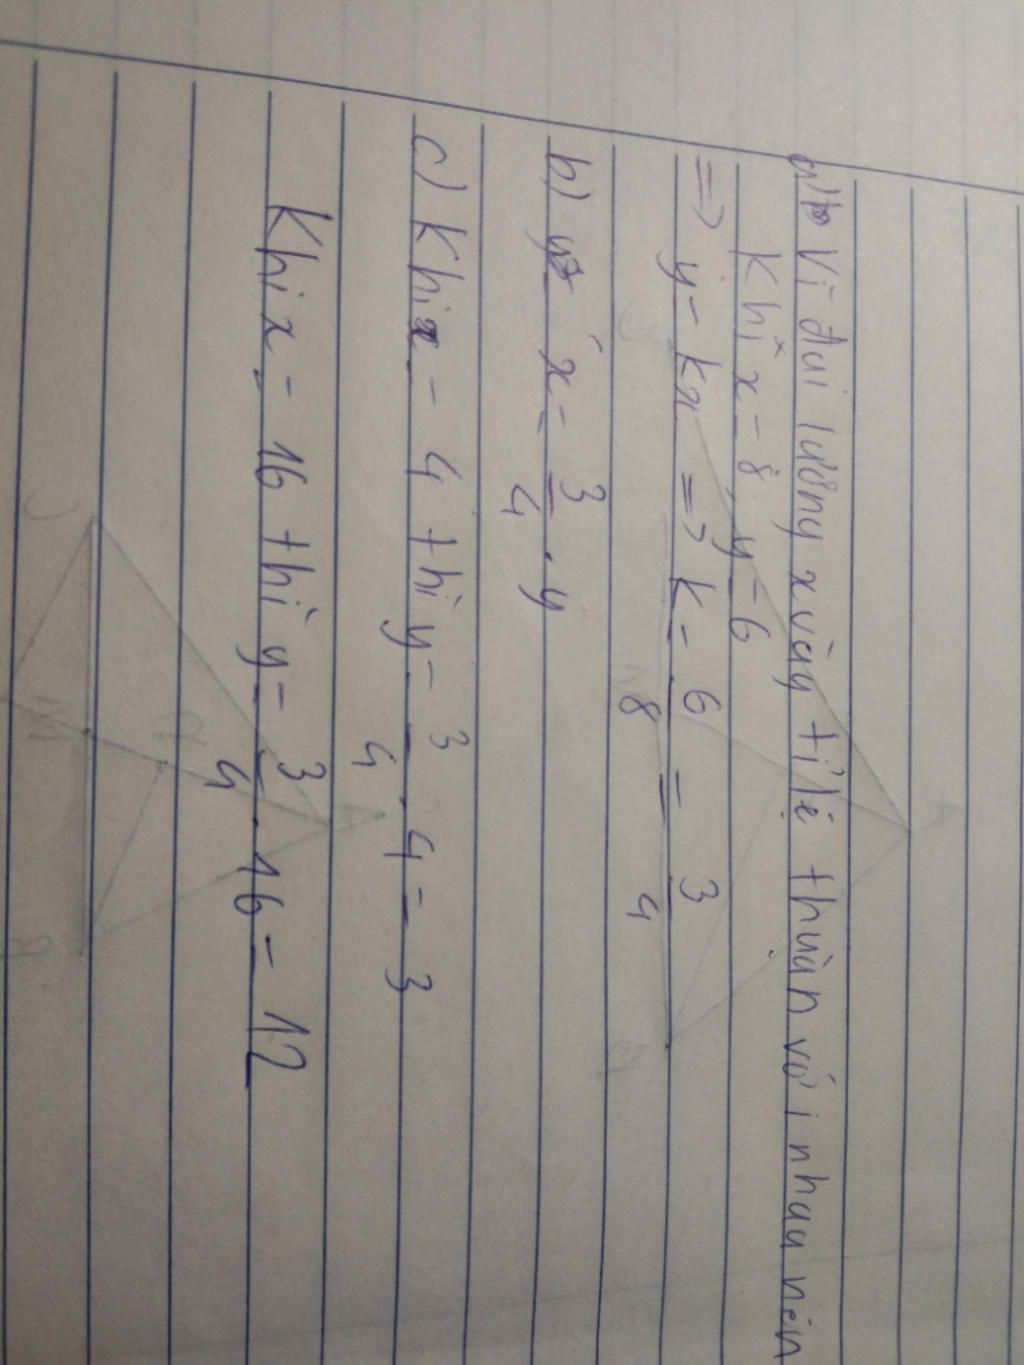 a) Vì đai lượng x và y tỉ lệ thuận với nhau nên
Khi x = 8, y = 6
=> y = kx => k = 6/8 = 3/4
b) x = 3/4 . y
c) Khi x = 4 thì y = 3/4 . 4 = 3
Khi x = 16 thì y = 3/4 . 16 = 12